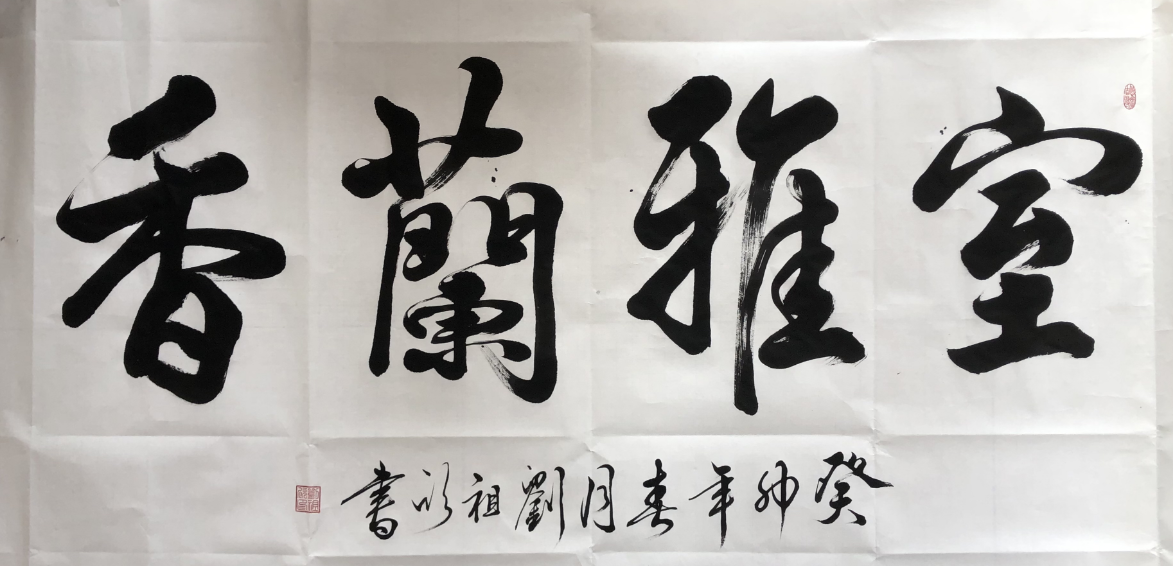 室雅蘭香
癸卯年春月劉祖書